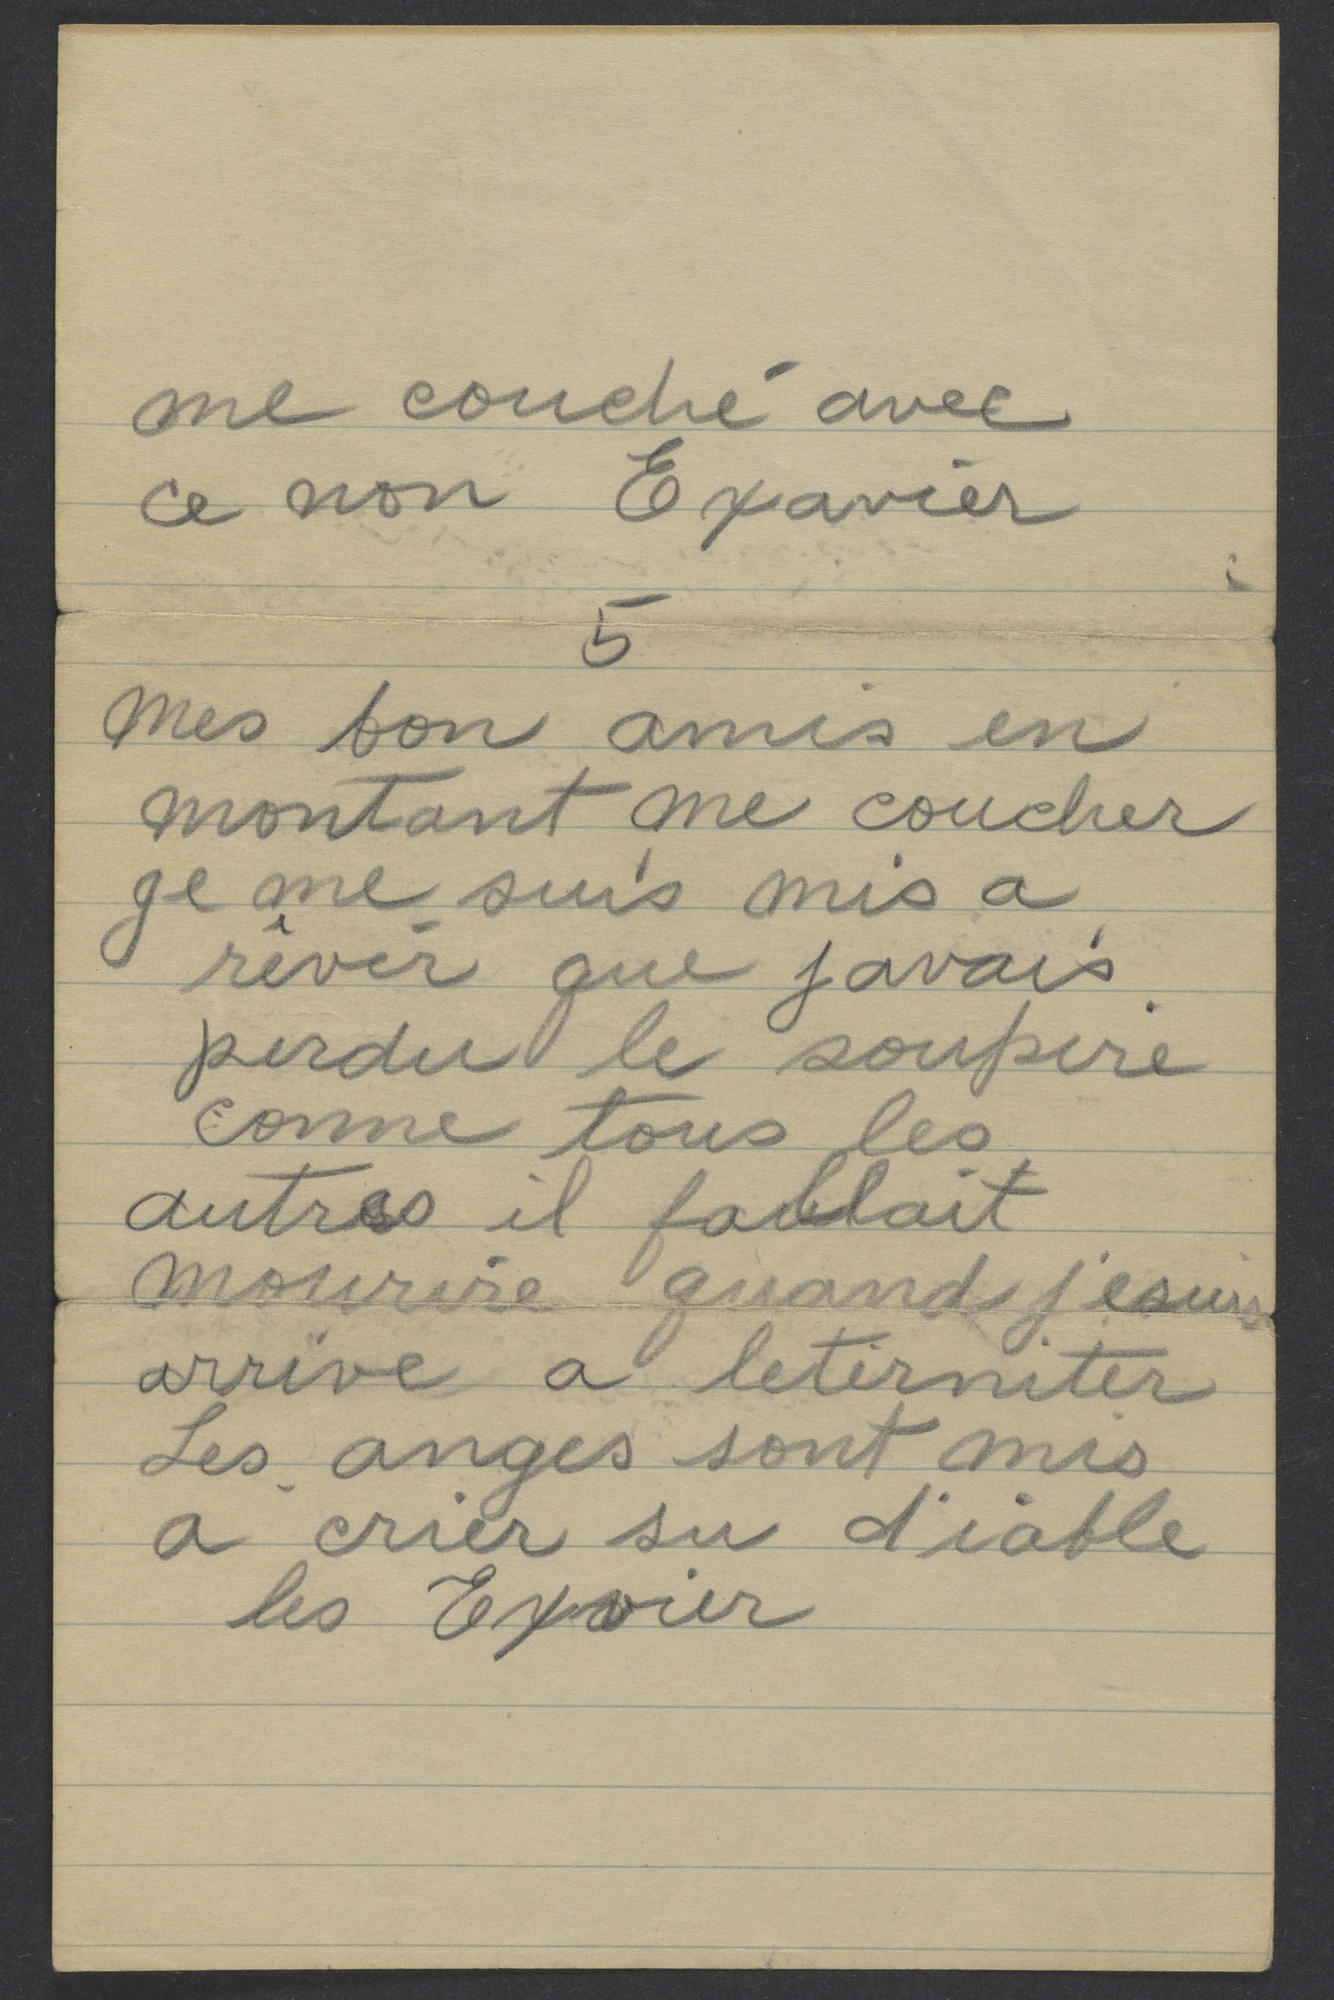 me couché avec
ce non Exavier
5
Mes bon amis en
montant me coucher
ge me suis mis a
rêver que javais
perdu le soupire
comme tous les
autres il fallait
mourire quand j'esuis
arrive a leterniter
Les anges sont mis
a crier su d'iable
les Exavier